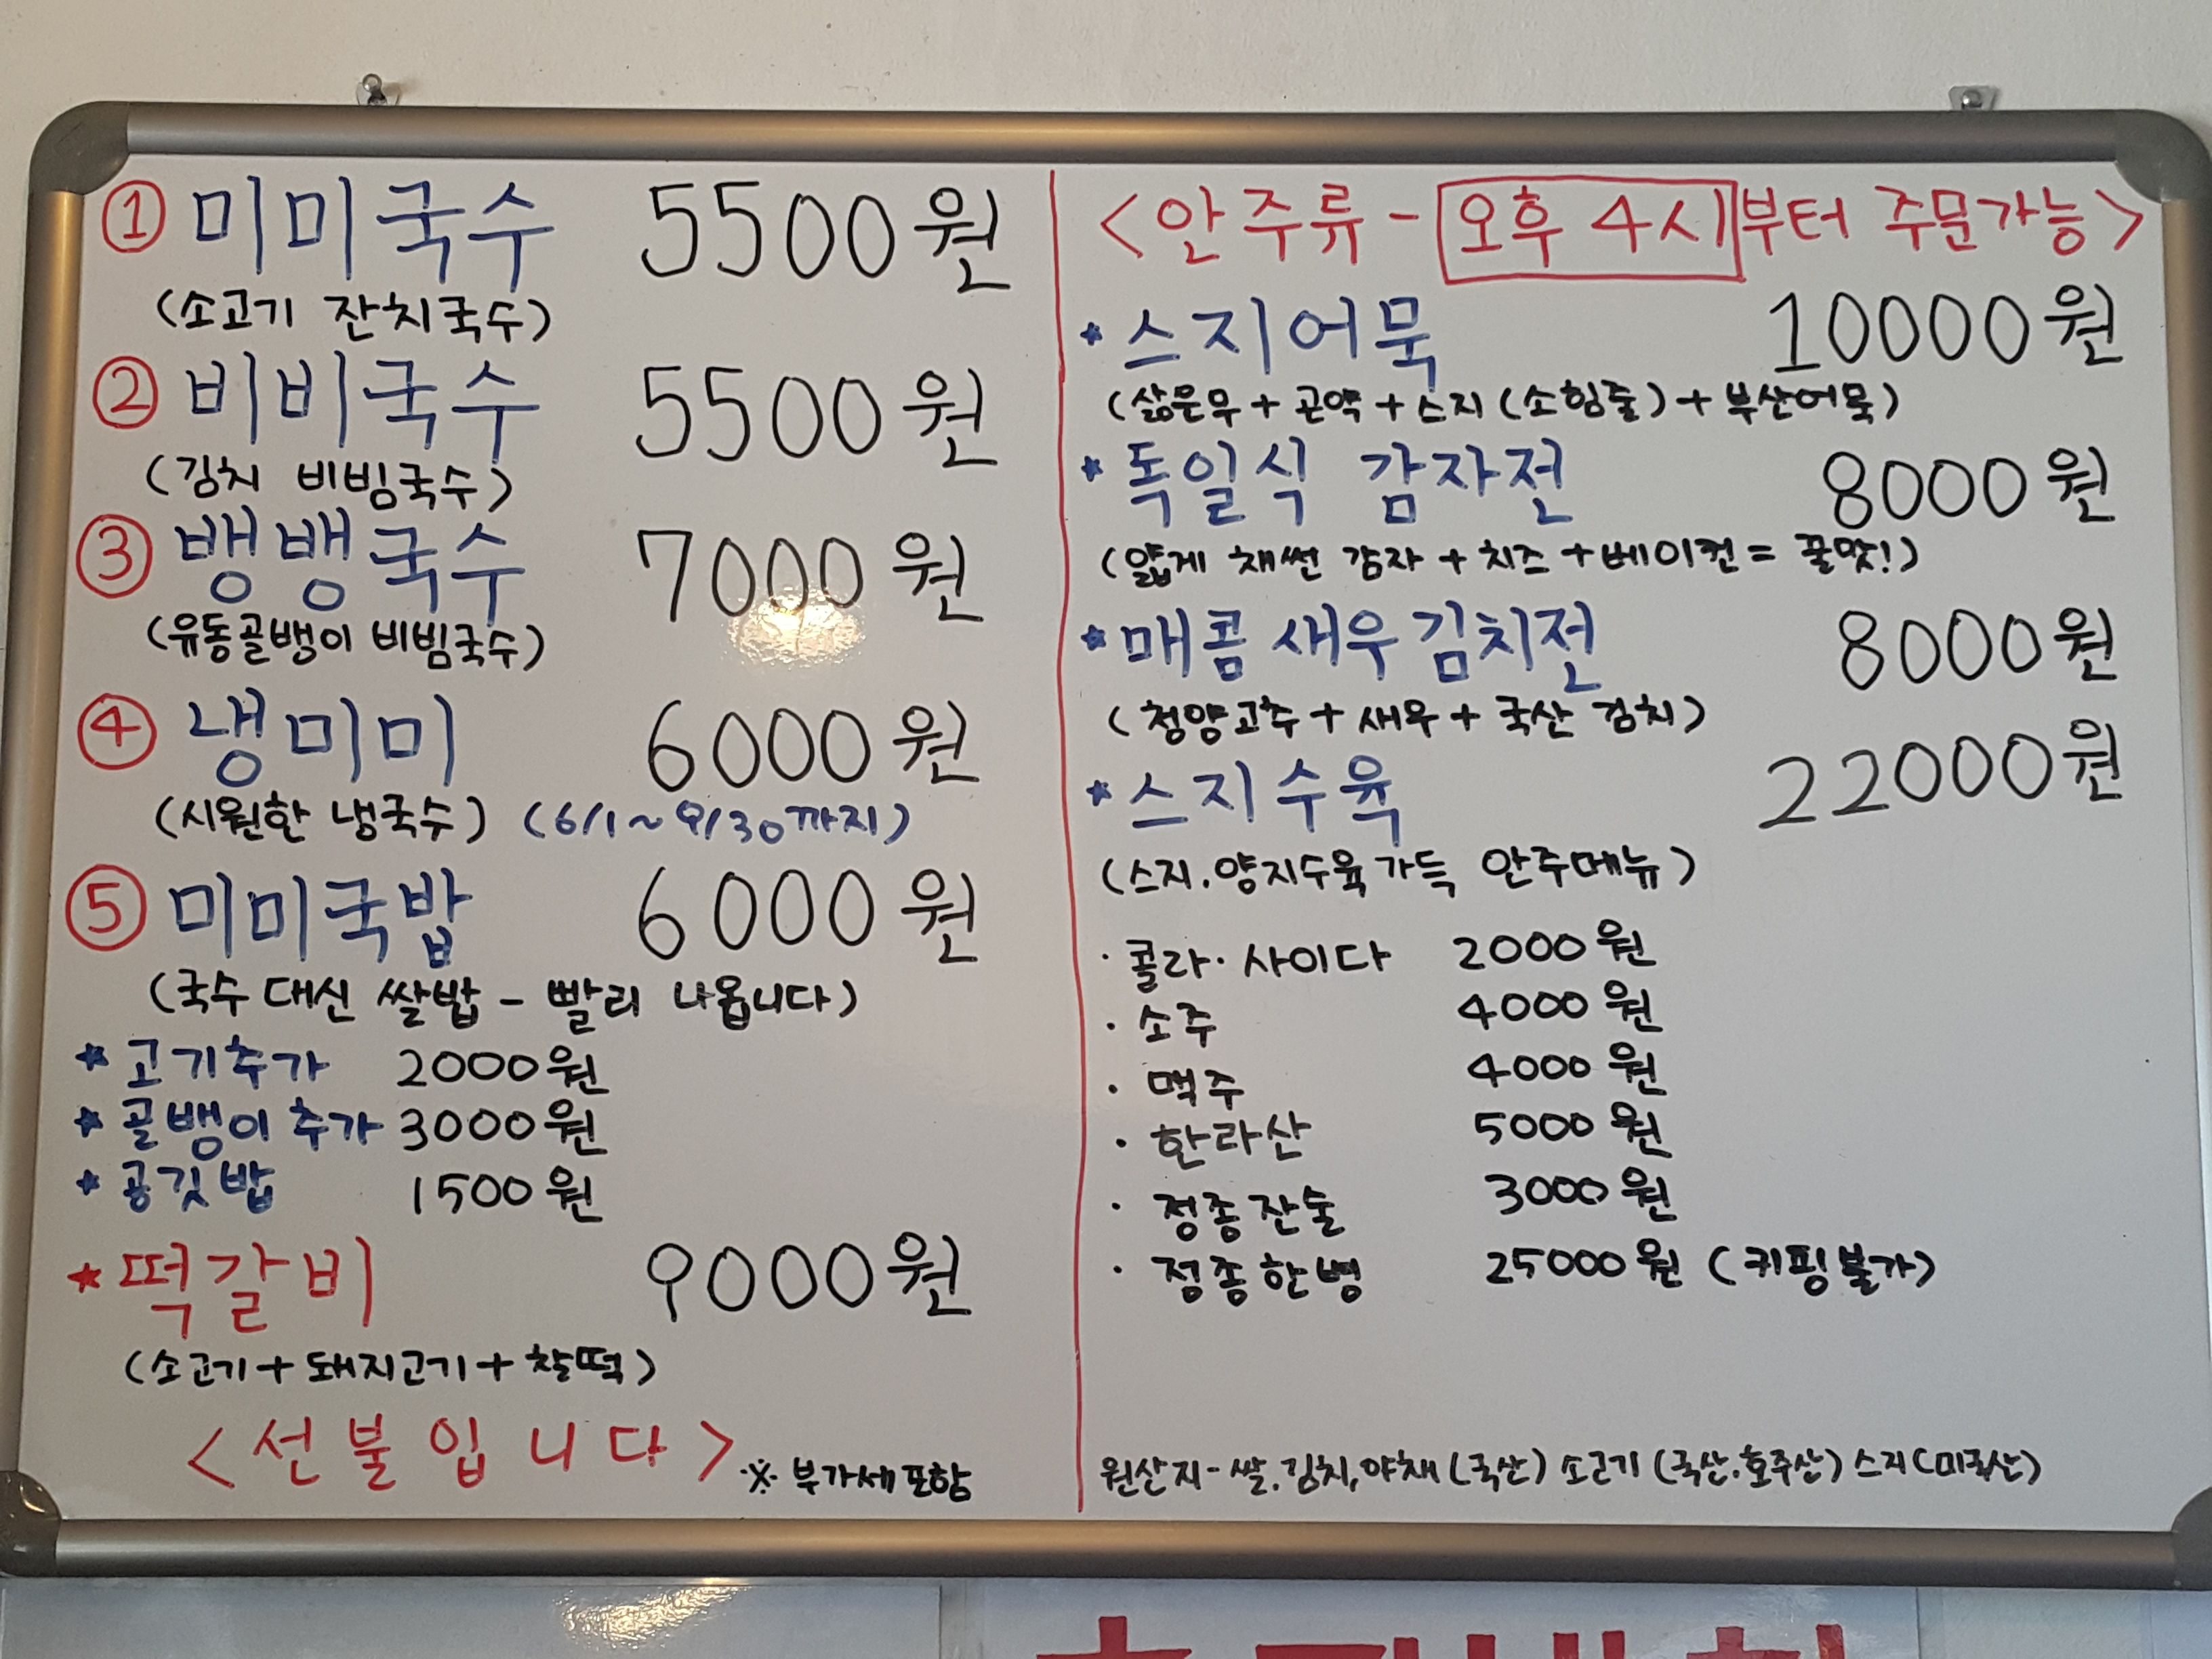 ① 미미국수 5500원
(소고기 잔치국수)
② 비비국수 5500원
(김치 비빔국수)
③ 뱅뱅국수 7000원
(유동골뱅이 비빔국수)
④ 냉미미 6000원
(시원한 냉국수) (6/1~9/30까지)
⑤ 미미국밥 6000원
(국수대신 쌀밥 - 빨리 나옵니다)
* 고기추가 2000원
* 골뱅이 추가 3000원
* 공깃밥 1500원
* 떡갈비 9000원
(소고기+돼지고기+찰떡)
<선불입니다> ※ 부가세포함
<안주류 - 오후 4시부터 주문가능>
* 스지어묵 10000원
(삶은무+곤약+스지(소힘줄)+부산어묵)
* 독일식 감자전 8000원
(얇게 채썬 감자+치즈+베이컨=꿀맛!)
* 매콤새우김치전 8000원
(청양고추+새우+국산 김치)
* 스지수육 22000원
(스지.양지수육가득 안주메뉴)
· 콜라·사이다 2000원
· 소주 4000원
· 맥주 4000원
· 한라산 5000원
· 정종잔술 3000원
· 정종한병 25000원 (키핑불가)
원산지-쌀.김치,야채(국산) 소고기(국산.호주산) 스지(미국산)